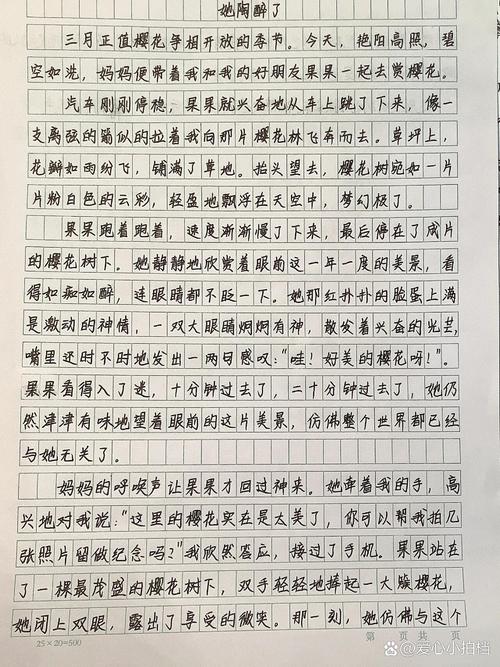 她陶醉了
三月正值樱花争相开放的季节。今天，艳阳高照，碧
空如洗，妈妈便带着我和我的好朋友果果一起去赏樱花。
汽车刚刚停稳，果果就兴奋地从车上跳了下来，像一
支离弦的箭似的拉着我向那片樱花林飞奔而去。草坪上，
花瓣如雨纷飞，铺满了草地。抬头望去，樱花树宛如一片
片粉白色的云彩，轻盈地飘浮在天空中，梦幻极了。
果果跑着跑着，速度渐渐慢了下来，最后停在了成片
的樱花树下。她静静地欣赏着眼前这一年一度的美景，看
得如痴如醉，连眼睛都不眨一下。她那红扑扑的脸蛋上满
是激动的神情，一双大眼睛炯炯有神，散发着兴奋的光芒，
嘴里还时不时地发出一两句感叹：“哇！好美的樱花呀！”。
果果看得入了迷，十分钟过去了，二十分钟过去了，她仍
然津津有味地望着眼前的这片美景，仿佛整个世界都已经
与她无关了。
妈妈的呼唤声让果果才回过神来。她牵着我的手，高
兴地对我说：“这里的樱花实在是太美了，你可以帮我拍几
张照片留做纪念吗？”我欣然答应，接过了手机。果果站在
了一棵最茂盛的樱花树下，双手轻轻地捧起一大簇樱花，
她闭上双眼，露出了享受的微笑。那一刻，她仿佛与这个
25×20=500
第 页共 页
@爱心小拍档